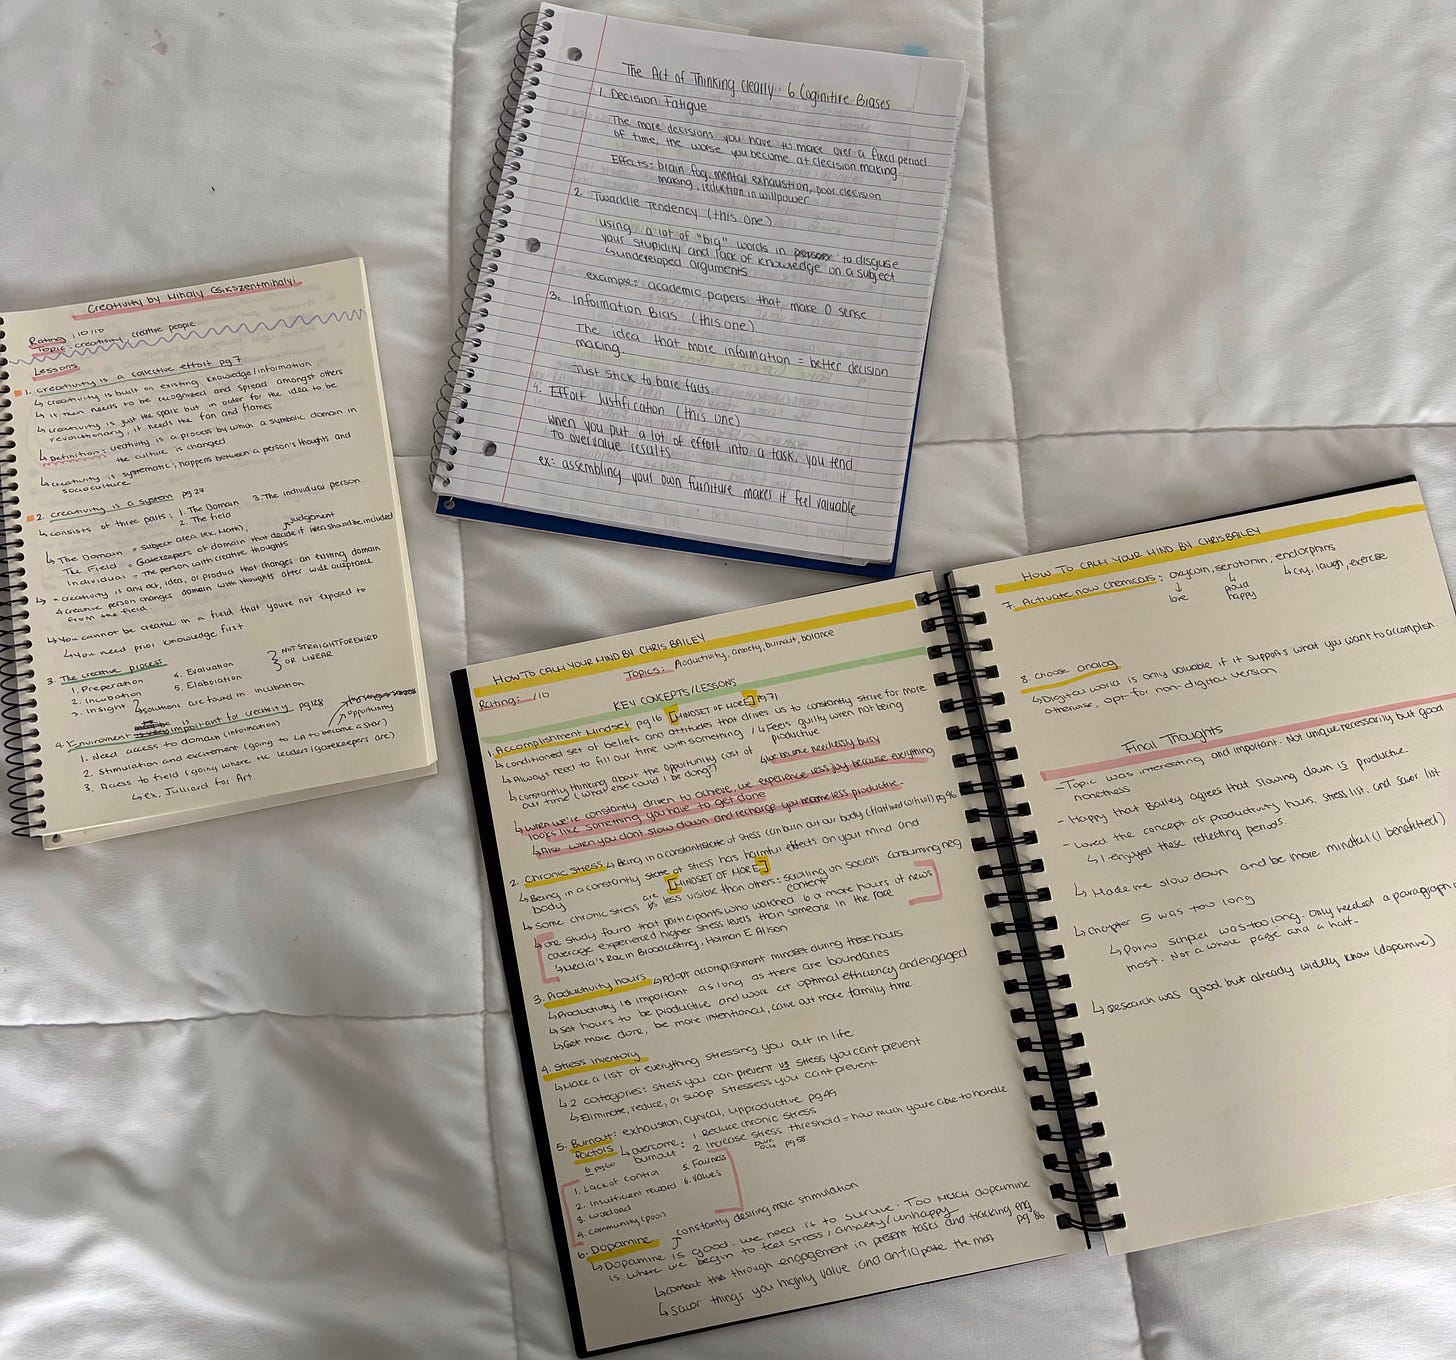 Creativity by Mihaly Csikszentmihalyi
Rating: 10/10
Topic: creativity, creative people
Lessons
1. Creativity is a collective effort pg 7
↳ creativity is built on existing knowledge/information
↳ it then needs to be recognized and spread amongst others
↳ creativity is just the spark but in order for the idea to be
revolutionary, it needs the fan and flames
↳ Definition: creativity is a process by which a symbolic domain in
the culture is changed
↳ creativity is systematic; happens between a person's thoughts and
socioculture
2. Creativity is a system pg 27
↳ consists of three parts: 1. The Domain 3. The individual person
2. The field
judgement
↳ The Domain = subject area (ex. Math),
The Field = Gatekeepers of domain that decide if idea should be included
Individual = The person with creative thoughts
↳ - creativity is any act, idea, or product that changes an existing domain
↳ creative person changes domain with thoughts after wide acceptance
from the field.
↳ You cannot be creative in a field that you're not exposed to
↳ You need prior knowledge first
3. The creative process
1. Preparation 4. Evaluation
2. Incubation 5. Elaboration
3. Insight
NOT STRAIGHTFOREWORD
OR LINEAR
↳ solutions are found in incubation
4. Enviroment is important for creativity pg 128
opportunity
1. Need access to domain (information)
2. Stimulation and excitement (going to LA to become a star)
3. Access to field (going where the leaders/gatekeepers are)
↳ ex. Julliard for Art
The Art of Thinking Clearly: 6 Coginitive Biases
1. Decision Fatigue
The more decisions you have to make over a fixed period
of time, the worse you become at decision making.
Effects: brain fog, mental exhaustion, poor decision
making, reduction in willpower
2. Twaddle Tendency (this one)
using a lot of "big" words in to disguise
your stupidity and lack of knowledge on a subject
↳ undeveloped arguments
example: academic papers that make 0 sense
3. Information Bias (this one)
The idea that more information = better decision
making.
Just stick to bare facts.
4. Effort Justification (this one)
when you put a lot of effort into a task, you tend
to overvalue results
ex: assembling your own furniture makes it feel valuable
HOW TO CALM YOUR MIND BY CHRIS BAILEY
Rating: /10
Topics: Productivity, anxiety, burnout, balance
KEY CONCEPTS/LESSONS
1. Accomplishment Mindset pg 16 [MINDSET OF MORE] pg 71
↳ conditioned set of beliefs and attitudes that drives us to constantly strive for more
↳ Always need to fill our time with something / ↳ Feels guilty when not being
productive
↳ constantly thinking about the opportunity cost of
our time (what else could I be doing?) ↳ we become needlessly busy
↳ when we're constantly driven to achieve, we experience less joy because everything
looks like something you have to get done
↳ Also when you dont slow down and recharge you become less productive
2. Chronic Stress ↳ Being in a constant state of stress can burn out our body
↳ Being in a constantly state of stress has harmful effects on your mind and
body [MINDSET OF MORE]
↳ some chronic stress are less visible than others: scrolling on socials consuming neg
content
↳ one study found that participants who watched 6 or more hours of news
coverage experienced higher stress levels than someone in the race
↳ Media's Role in Broadcasting, Holman E. Alison
3. Productivity hours ↳ Adopt accomplishment mindset during these hours
↳ Productivity is important as long as there are boundaries
↳ Set hours to be productive and work at optimal efficiency and engaged
↳ Get more done, be more intentional, carve out more family time.
4. Stress inventory
↳ Make a list of everything stressing you out in life
↳ 2 categories: stress you can prevent vs stress you cant prevent
↳ Eliminate, reduce, or swap stressess you cant prevent
5. Burnout: exhaustion, cynical, unproductive pg 49
factors ↳ overcome burnout: 1. Reduce chronic stress
6 pg 60 2. Increase stress threshold = how much you're able to handle
burn out pg 58
1. Lack of control 5. Fairness
2. Insufficient reward 6. values
3. workload
4. community (poor)
6. Dopamine constantly desiring more stimulation
↳ Dopamine is good. we need is to survive. Too much dopamine
is where we begin to feel stress/anxiety/unhappy
↳ combat this through engagement in present tasks and tracking eng pg 86
↳ savor things you highly value and anticipate the most
HOW TO CALM YOUR MIND BY CHRIS BAILEY
7. Activate now chemicals: oxycoin, serotonin, endorphins
↓ love ↳ happy ↳ cry, laugh, exercise
8. choose analog
↳ Digital world is only valuable if it supports what you want to accomplish.
otherwise, opt for non-digital version
Final Thoughts
- Topic was interesting and important. Not unique necessarily but good
nonetheless
- Happy that Bailey agrees that slowing down is productive.
- Loved the concept of productivity hours, stress list, and savor list
↳ I enjoyed these reflecting periods.
↳ Made me slow down and be more mindful (I benefitted)
↳ Chapter 5 was too long
↳ Porno schpiel was too long. Only needed a paragraph
most. Not a whole page and a half.
↳ Research was good but already widely know (dopamine)